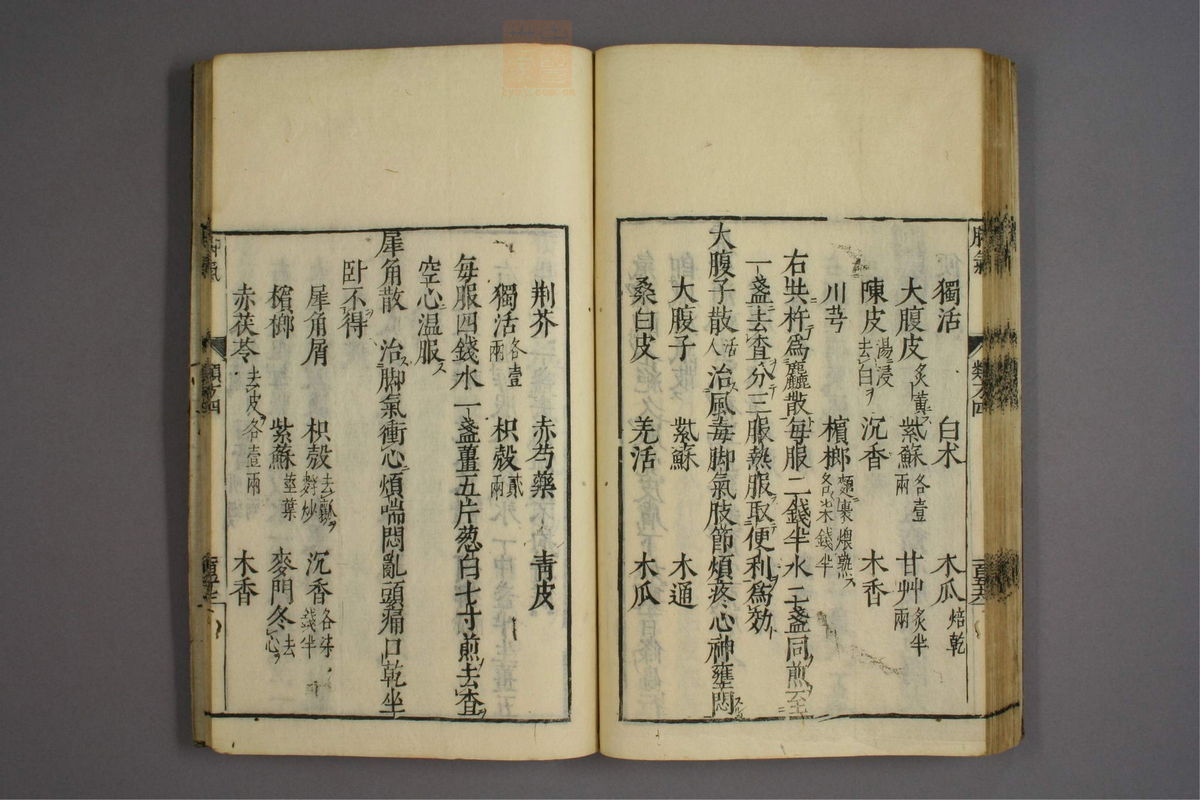 獨活 白术 木瓜焙乾
大腹皮炙黄 紫蘇各壹兩 甘艸炙半兩
陳皮湯浸去白 沉香 木香
川芎 檳榔麵裹煨熟各柒錢半
右共杵爲麤散每服二錢半水二盞同煎至
一盞去査分三服熱服取便利爲効
大腹子散活人治風毒脚氣肢節煩疼心神壅悶
大腹子 紫蘇 木通
桑白皮 羌活 木瓜
荆芥 赤芍藥 青皮
獨活各壹兩 枳殼貳兩
每服四錢水一盞薑五片葱白七寸煎去査
空心温服
犀角散 治脚氣衝心煩喘悶亂頭痛口乾坐
卧不得
犀角屑 枳殼去穰麩炒 沉香各柒錢半
檳榔 紫蘇莖葉 麥門冬去心
赤茯苓去皮各壹兩 木香